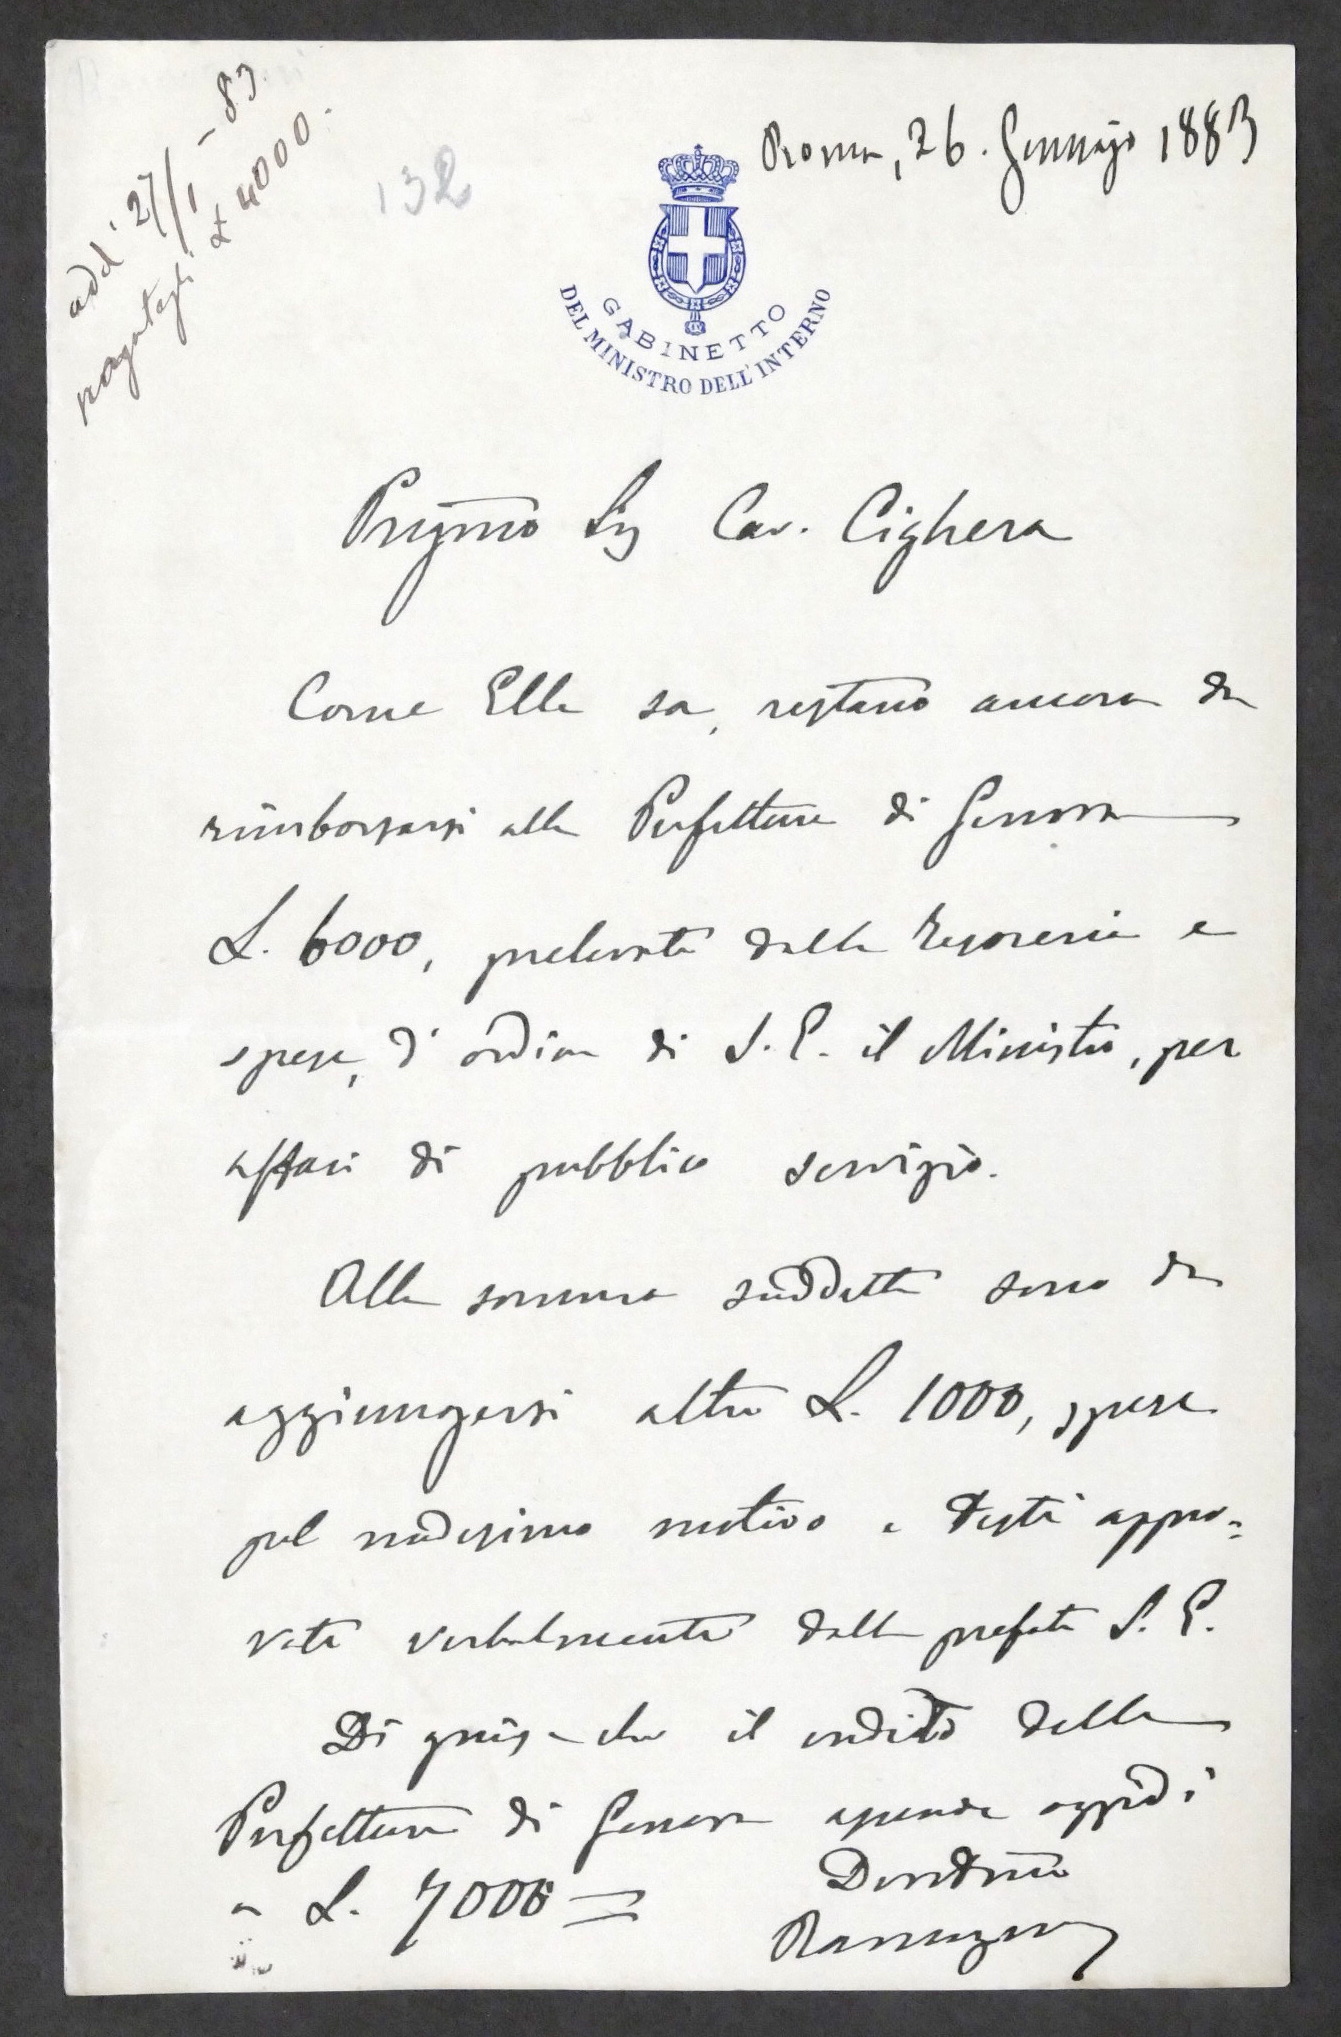 add' 27/1 - 83
pagategli £ 4000.
132
Roma, 26. Gennajo 1883
GABINETTO
DEL MINISTRO DELL'INTERNO
Pregmo Sig Cav. Cighera
Come Ella sa, restano ancora da
rimborsarsi alla Prefettura di Genova
L. 6000, prelevate dalla Tesoreria e
spese, d'ordine di S. E. il Ministro, per
affari di pubblico servizio.
Alla somma suddetta sono da
aggiungersi altre L. 1000, spese
pel medesimo motivo e teste appro=
vate verbalmente dalla prefata S. E.
Di guisa che il credito della
Prefettura di Genova ascende oggidì
a L. 7000 =
Devotmo